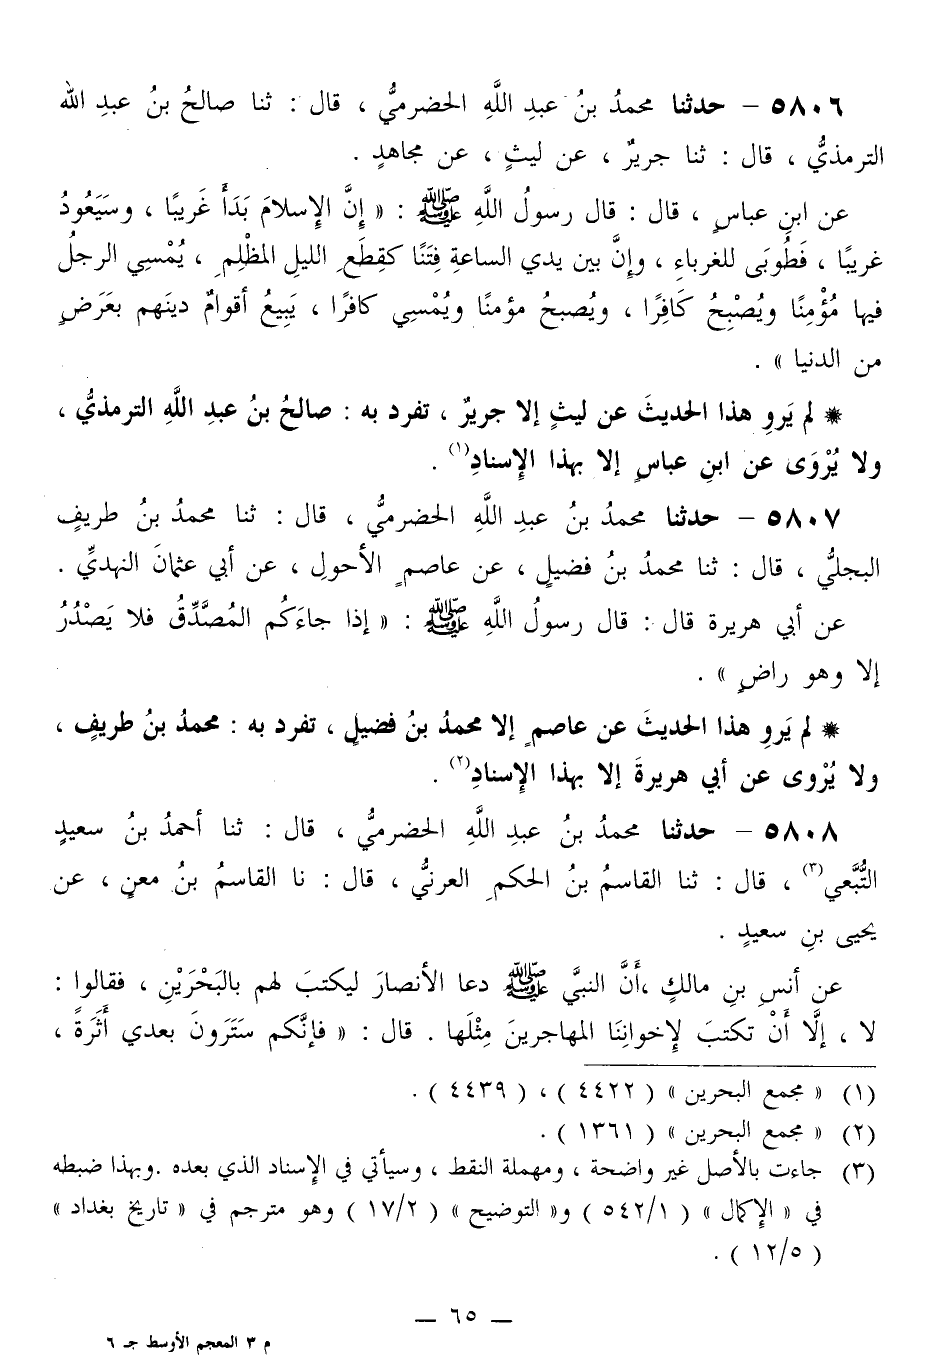 ٥٨٠٦ – حدثنا محمدُ بنُ عبدِ اللَّهِ الحضرميُّ ، قال : ثنا صالحُ بنُ عبدِ الله
الترمذيُّ ، قال : ثنا جريرٌ ، عن ليثٍ ، عن مجاهدٍ .
عن ابنِ عباسٍ ، قال : قال رسولُ اللَّهِ ﷺ : « إِنَّ الإِسلامَ بَدَأَ غَريبًا ، وسَيَعُودُ
غريبًا ، فَطُوبَى للغرباءِ ، وإِنَّ بين يدي الساعةِ فِتَنًا كقِطَعِ الليلِ المظْلِمِ ، يُمْسِي الرجلُ
فيها مُؤْمِنًا ويُصْبِحُ كَافِرًا ، ويُصبحُ مؤمنًا ويُمْسِي كافرًا ، يَبِيعُ أقوامٌ دينَهم بعَرَضٍ
من الدنيا » .
* لم يَروِ هذا الحديثَ عن ليثٍ إلا جريرٌ ، تفرد به : صالحُ بنُ عبدِ اللَّهِ الترمذيُّ ،
ولا يُرْوَى عن ابنِ عباسٍ إلا بهذا الإِسنادِ(١) .
٥٨٠٧ – حدثنا محمدُ بنُ عبدِ اللَّهِ الحضرميُّ ، قال : ثنا محمدُ بنُ طريفٍ
البجليُّ ، قال : ثنا محمدُ بنُ فضيلٍ ، عن عاصمٍ الأحولِ ، عن أبي عثمانَ النهديِّ .
عن أبي هريرة قال : قال رسولُ اللَّهِ ﷺ : « إذا جاءَكُم المُصَّدِّقُ فلا يَصْدُرُ
إلا وهو راضٍ » .
* لم يَروِ هذا الحديثَ عن عاصمٍ إلا محمدُ بنُ فضيلٍ ، تفرد به : محمدُ بنُ طريفٍ ،
ولا يُرْوى عن أبي هريرةَ إلا بهذا الإِسنادِ(٢) .
٥٨٠٨ – حدثنا محمدُ بنُ عبدِ اللَّهِ الحضرميُّ ، قال : ثنا أحمدُ بنُ سعيدٍ
التُّبَّعي(٣) ، قال : ثنا القاسمُ بنُ الحكمِ العرنيُّ ، قال : نا القاسمُ بنُ معنٍ ، عن
يحيى بنِ سعيدٍ .
عن أنسِ بنِ مالكٍ ،أَنَّ النبيَّ ﷺ دعا الأنصارَ ليكتبَ لهم بالبَحْرَيْنِ ، فقالوا :
لا ، إلَّا أَنْ تكتبَ لإِخوانِنَا المهاجرينَ مِثْلَها . قال : « فإنَّكم سَتَرَونَ بعدي أَثَرَةً ،
(١) « مجمع البحرين » ( ٤٤٢٢ ) ، ( ٤٤٣٩ ) .
(٢) « مجمع البحرين » ( ١٣٦١ ) .
(٣) جاءت بالأصل غير واضحة ، ومهملة النقط ، وسيأتي في الإسناد الذي بعده .وبهذا ضبطه
في « الإكمال » ( ٥٤٢/١ ) و« التوضيح » ( ١٧/٢ ) وهو مترجم في « تاريخ بغداد »
( ١٢/٥ ) .
— ٦٥ —
م ٣ المعجم الأوسط جـ ٦